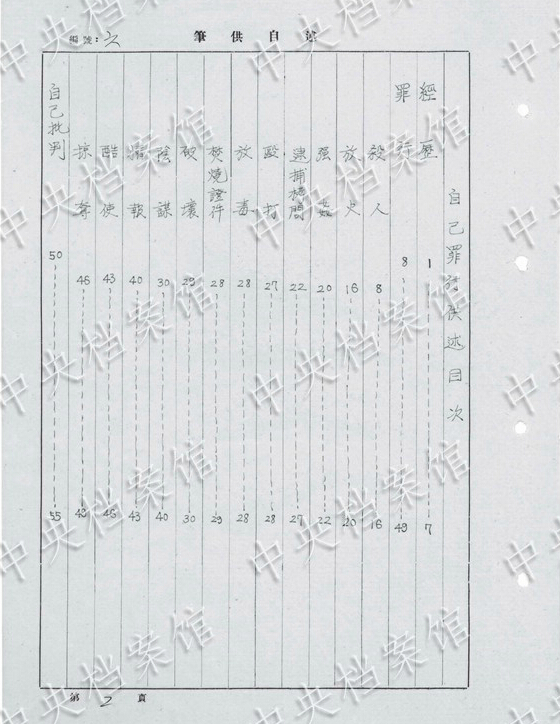 編號:六
筆供自述
自己罪行供述目次
經歷 1 7
罪行 8 49
殺人 8 16
放火 16 20
强姦 20 22
逮捕拷問 22 27
毆打 27 28
放毒 28 28
焚燒證件 28 29
破壞 29 30
陰謀 30 40
情報 40 43
酷使 43 46
掠奪 46 49
自己批判 50 55
第2頁
中央档案馆